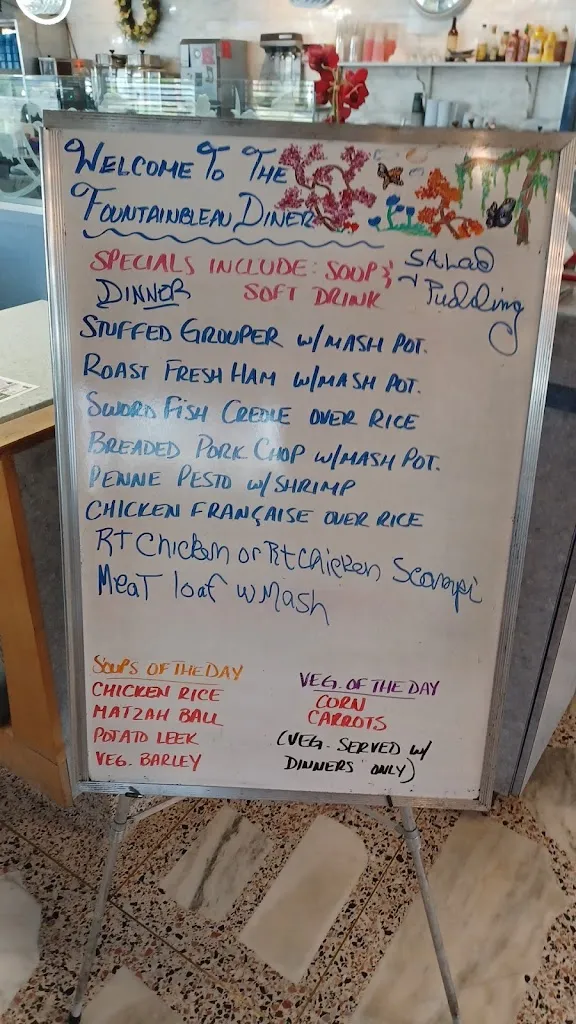 WELCOME TO THE
FOUNTAINBLEAU DINER
SPECIALS INCLUDE: SOUP & SALAD
DINNER SOFT DRINK + Pudding
STUFFED GROUPER W/MASH POT.
ROAST FRESH HAM W/MASH POT.
SWORD FISH CREOLE OVER RICE
BREADED PORK CHOP W/MASH POT.
PENNE PESTO W/SHRIMP
CHICKEN FRANÇAISE OVER RICE
RT Chicken or Rt Chicken Scarapi
MeaT loaf w Mash
SOUPS OF THE DAY
CHICKEN RICE
MATZAH BALL
POTATO LEEK
VEG. BARLEY
VEG. OF THE DAY
CORN
CARROTS
(VEG. SERVED W/
DINNERS ONLY)